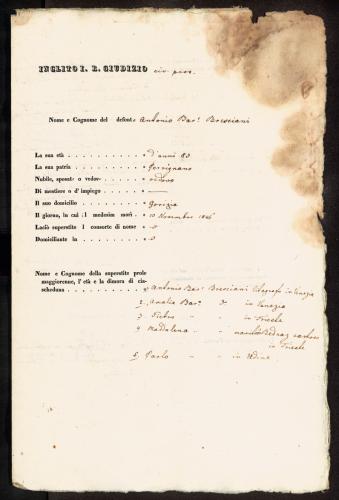 INCLITO I. R. GIUDIZIO civ. prov.
Nome e Cognome del defonto Antonio Bar.e Bresciani
La sua età . . . . . . . . . . d'anni 80
La sua patria . . . . . . . . . Cervignano
Nubile, sposato o vedovo . . . . . vedovo
Di mestiere o d'impiego . . . . . —
Il suo domicilio . . . . . . . . Gorizia
Il giorno, in cui 'l medesimo morì . 10 Novembre
Lasciò superstite 'l consorte di nome . 0
Domiciliante in . . . . . . . . 0
Nome e Cognome della superstite prole
maggiorenne, l' età e la dimora di cia-
scheduna . . . . . . . . . . 1, Antonio Bar.e Bresciani in Venezia
2, Amalia Bar.e in Venezia
3, Pietro " " in Trieste
4, Maddalena " "
in Trieste
5, Carlo " in Udine